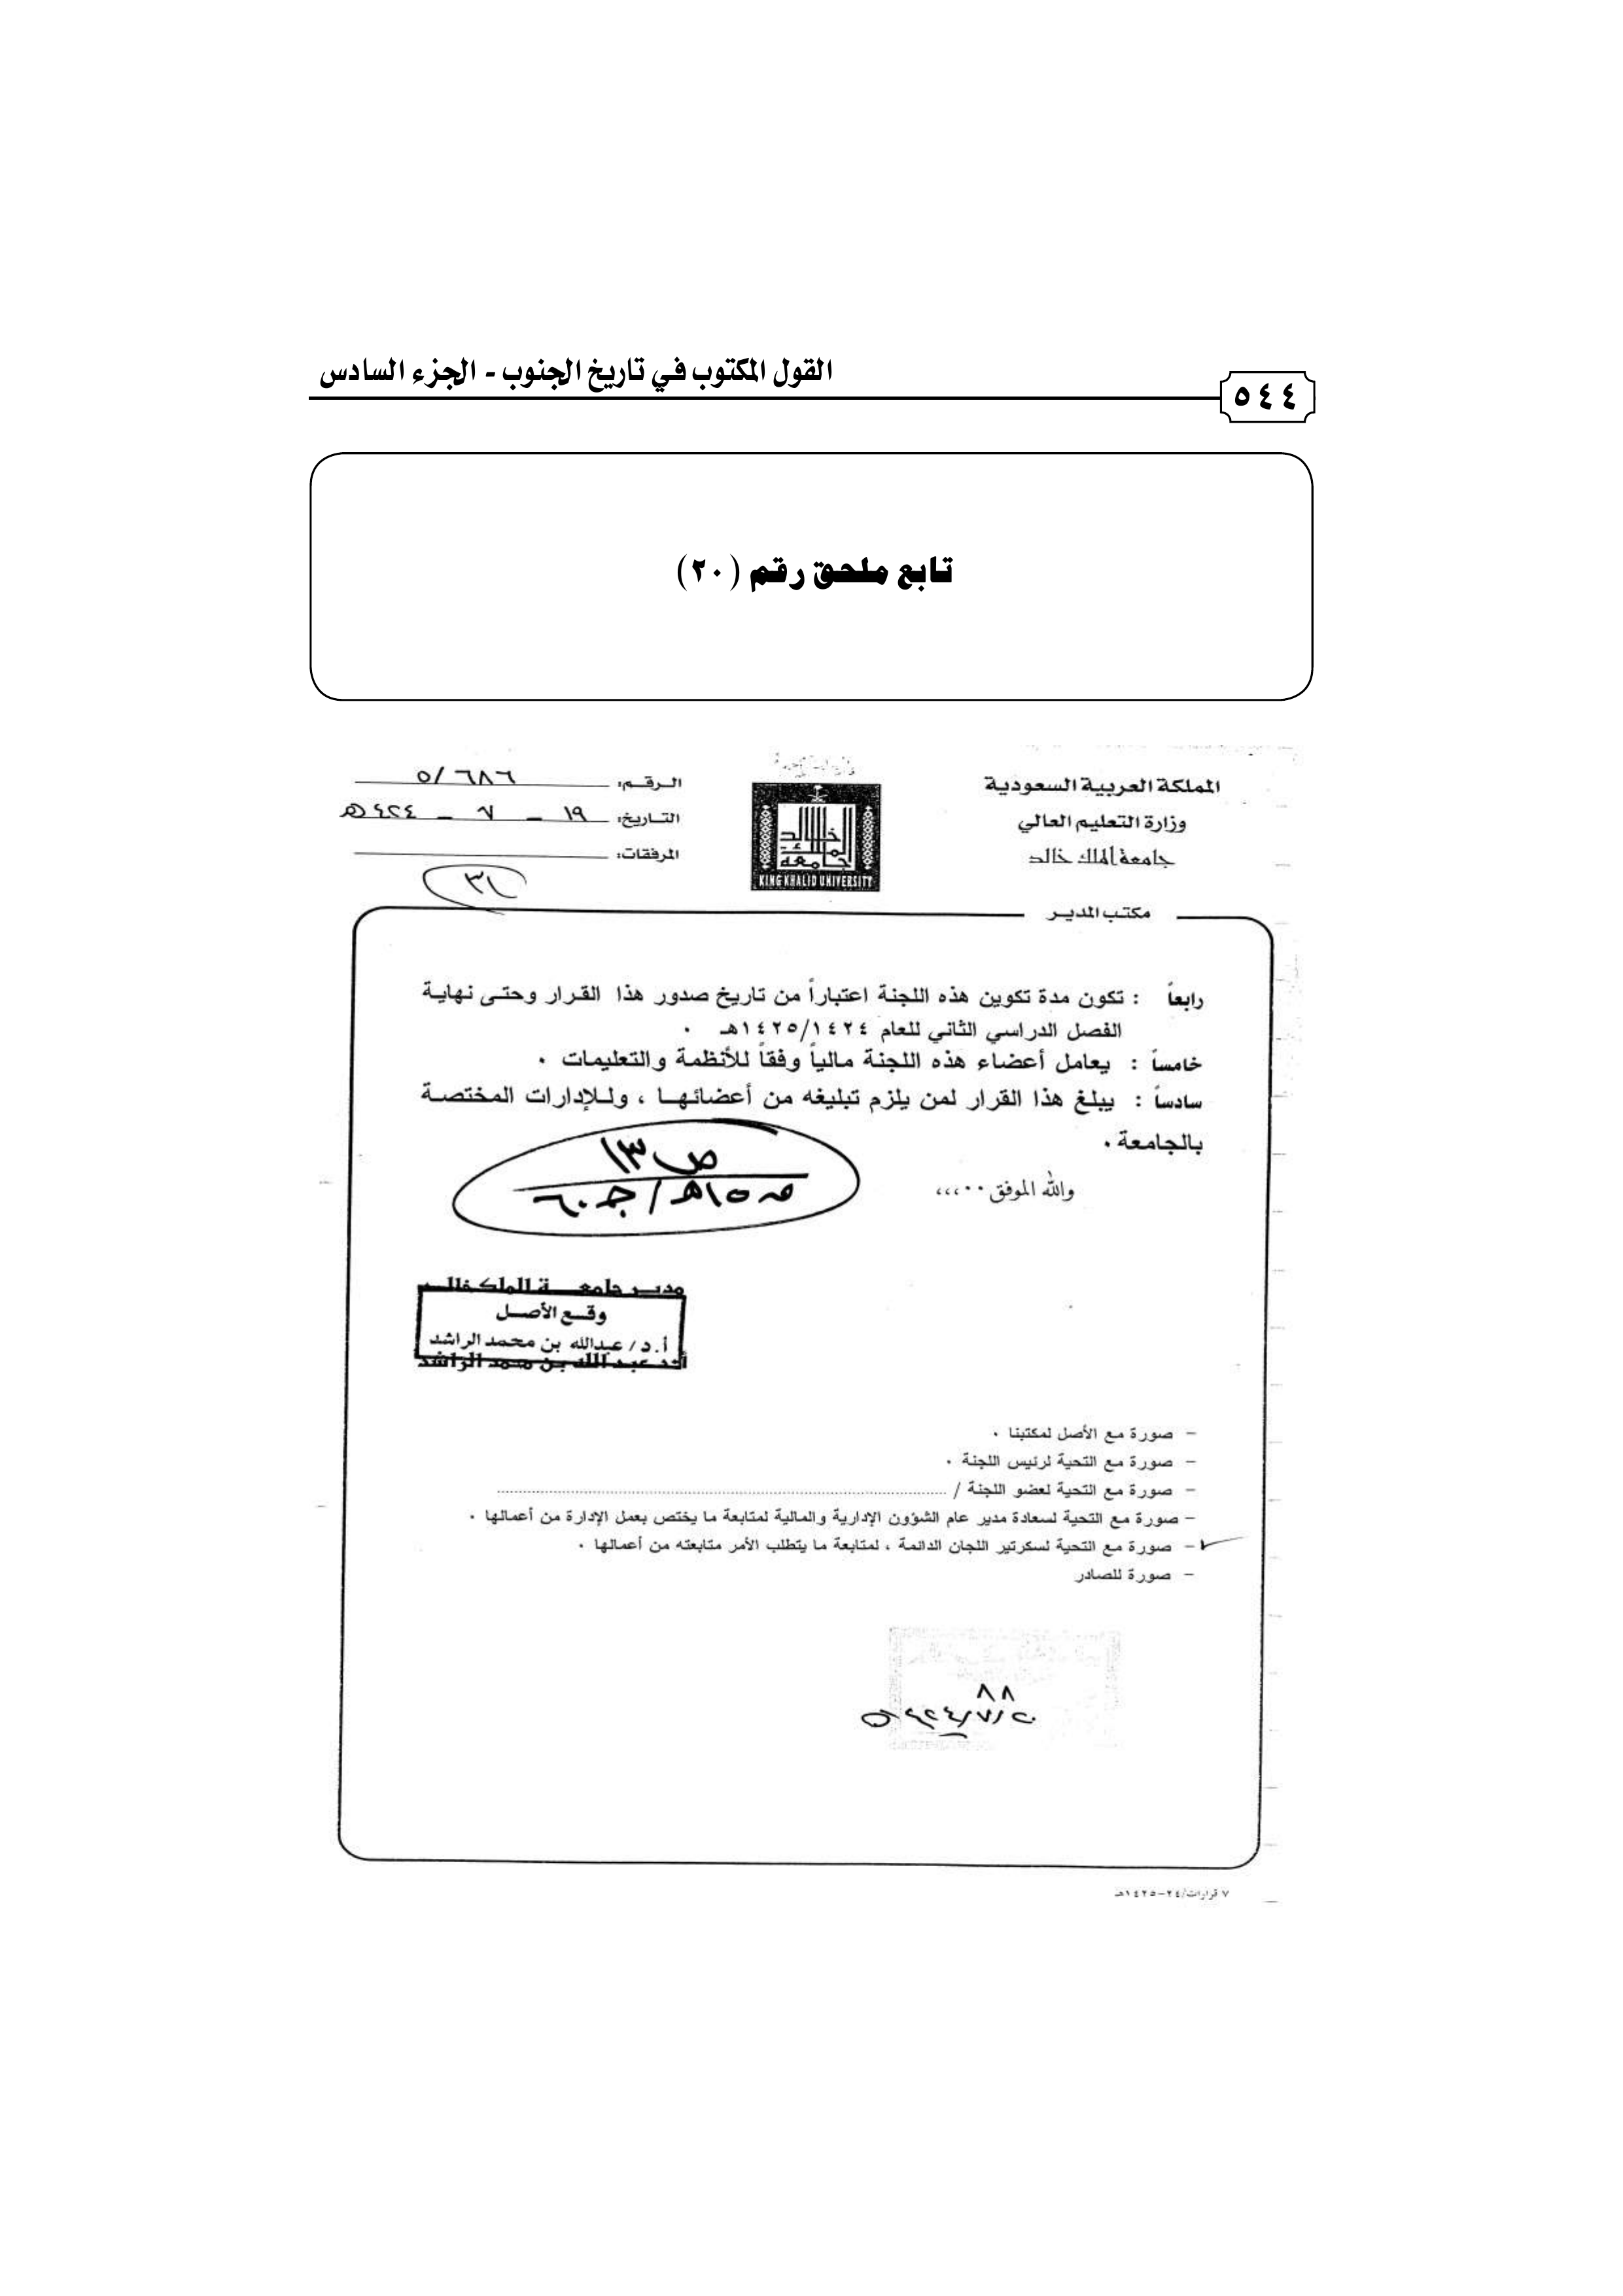 القول المكتوب في تاريخ الجنوب - الجزء السادس
٥٤٤
تابع ملحق رقم (٢٠)
المملكة العربية السعودية
وزارة التعليم العالي
جامعة الملك خالد
جامعة الملك خالد
KING KHALID UNIVERSITY
الرقم: ٥/٦٨٦
التاريخ: ١٩ - ٧ - ٤٢٤هـ
المرفقات:
٣١
مكتب المدير
رابعاً : تكون مدة تكوين هذه اللجنة اعتباراً من تاريخ صدور هذا القرار وحتى نهاية
الفصل الدراسي الثاني للعام ١٤٢٥/١٤٢٤هـ .
خامساً : يعامل أعضاء هذه اللجنة مالياً وفقاً للأنظمة والتعليمات .
سادساً : يبلغ هذا القرار لمن يلزم تبليغه من أعضائها ، وللإدارات المختصة
بالجامعة .
والله الموفق ..،،،
ص ١٣
مدير جامعة الملك خالد
وقع الأصل
أ.د / عبدالله بن محمد الراشد
أ.د عبد الله بن محمد الراشد
- صورة مع الأصل لمكتبنا .
- صورة مع التحية لرئيس اللجنة .
- صورة مع التحية لعضو اللجنة / ........................................
- صورة مع التحية لسعادة مدير عام الشؤون الإدارية والمالية لمتابعة ما يختص بعمل الإدارة من أعمالها .
- صورة مع التحية لسكرتير اللجان الدائمة ، لمتابعة ما يتطلب الأمر متابعته من أعمالها .
- صورة للصادر
٨٨
٧ قرارات/٢٤-١٤٢٥هـ